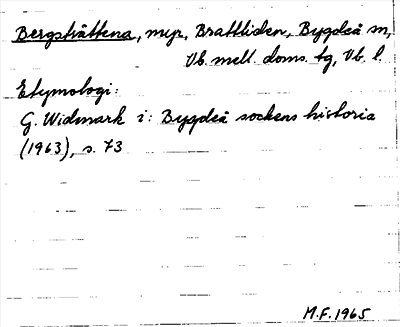 Bergstråttena, myr, Brattliden, Bygdeå sn,
Vb. mell. doms. tg, Vb. l.
Etymologi:
G. Widmark i: Bygdeå sockens historia
(1963), s. 73
M.F. 1965